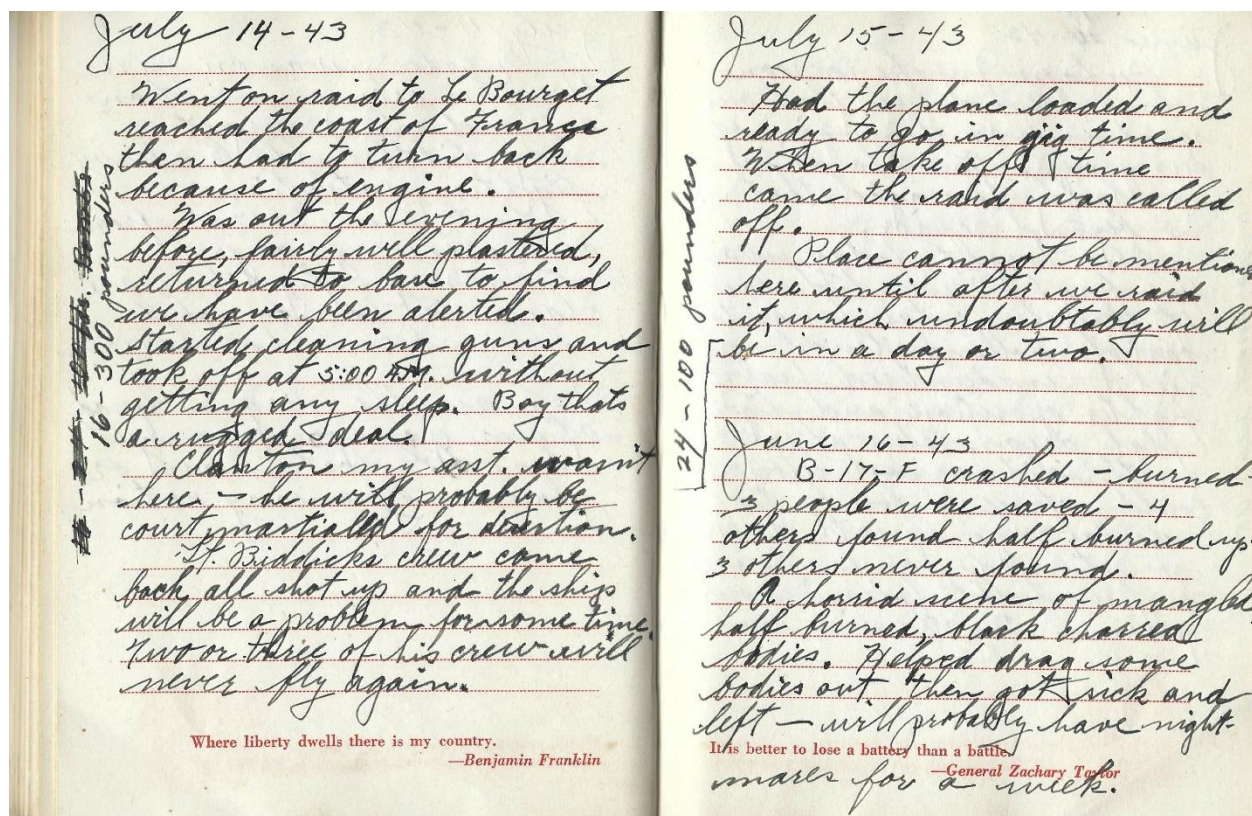 July 14-43
Went on raid to Le Bourget
reached the coast of France
then had to turn back
because of engine.
Was out the evening
before, fairly well plastered,
returned to base to find
we have been alerted.
Started cleaning guns and
took off at 5:00 A.M. without
getting any sleep. Boy thats
a rugged deal.
my asst. wasn't
here - he will probably be
court martialed for desertion.
Lt. Biddicks crew came
back all shot up and the ship
will be a problem for some time.
Two or three of his crew will
never fly again.
16-300 pounders
Where liberty dwells there is my country.
—Benjamin Franklin
July 15-43
Had the plane loaded and
ready to go in gig time.
When take off time
came the raid was called
off.
Place cannot be mention
here until after we raid
it, which undoubtably will
be in a day or two.
24-100 pounders
June 16-43
B-17-F crashed - burned-
3 people were saved - 4
others found half burned up-
3 others never found.
A horrid scene of mangled
half burned, black charred
bodies. Helped drag some
bodies out then got sick and
left - will probably have night-
mares for a week.
It is better to lose a battery than a battle.
—General Zachary Taylor